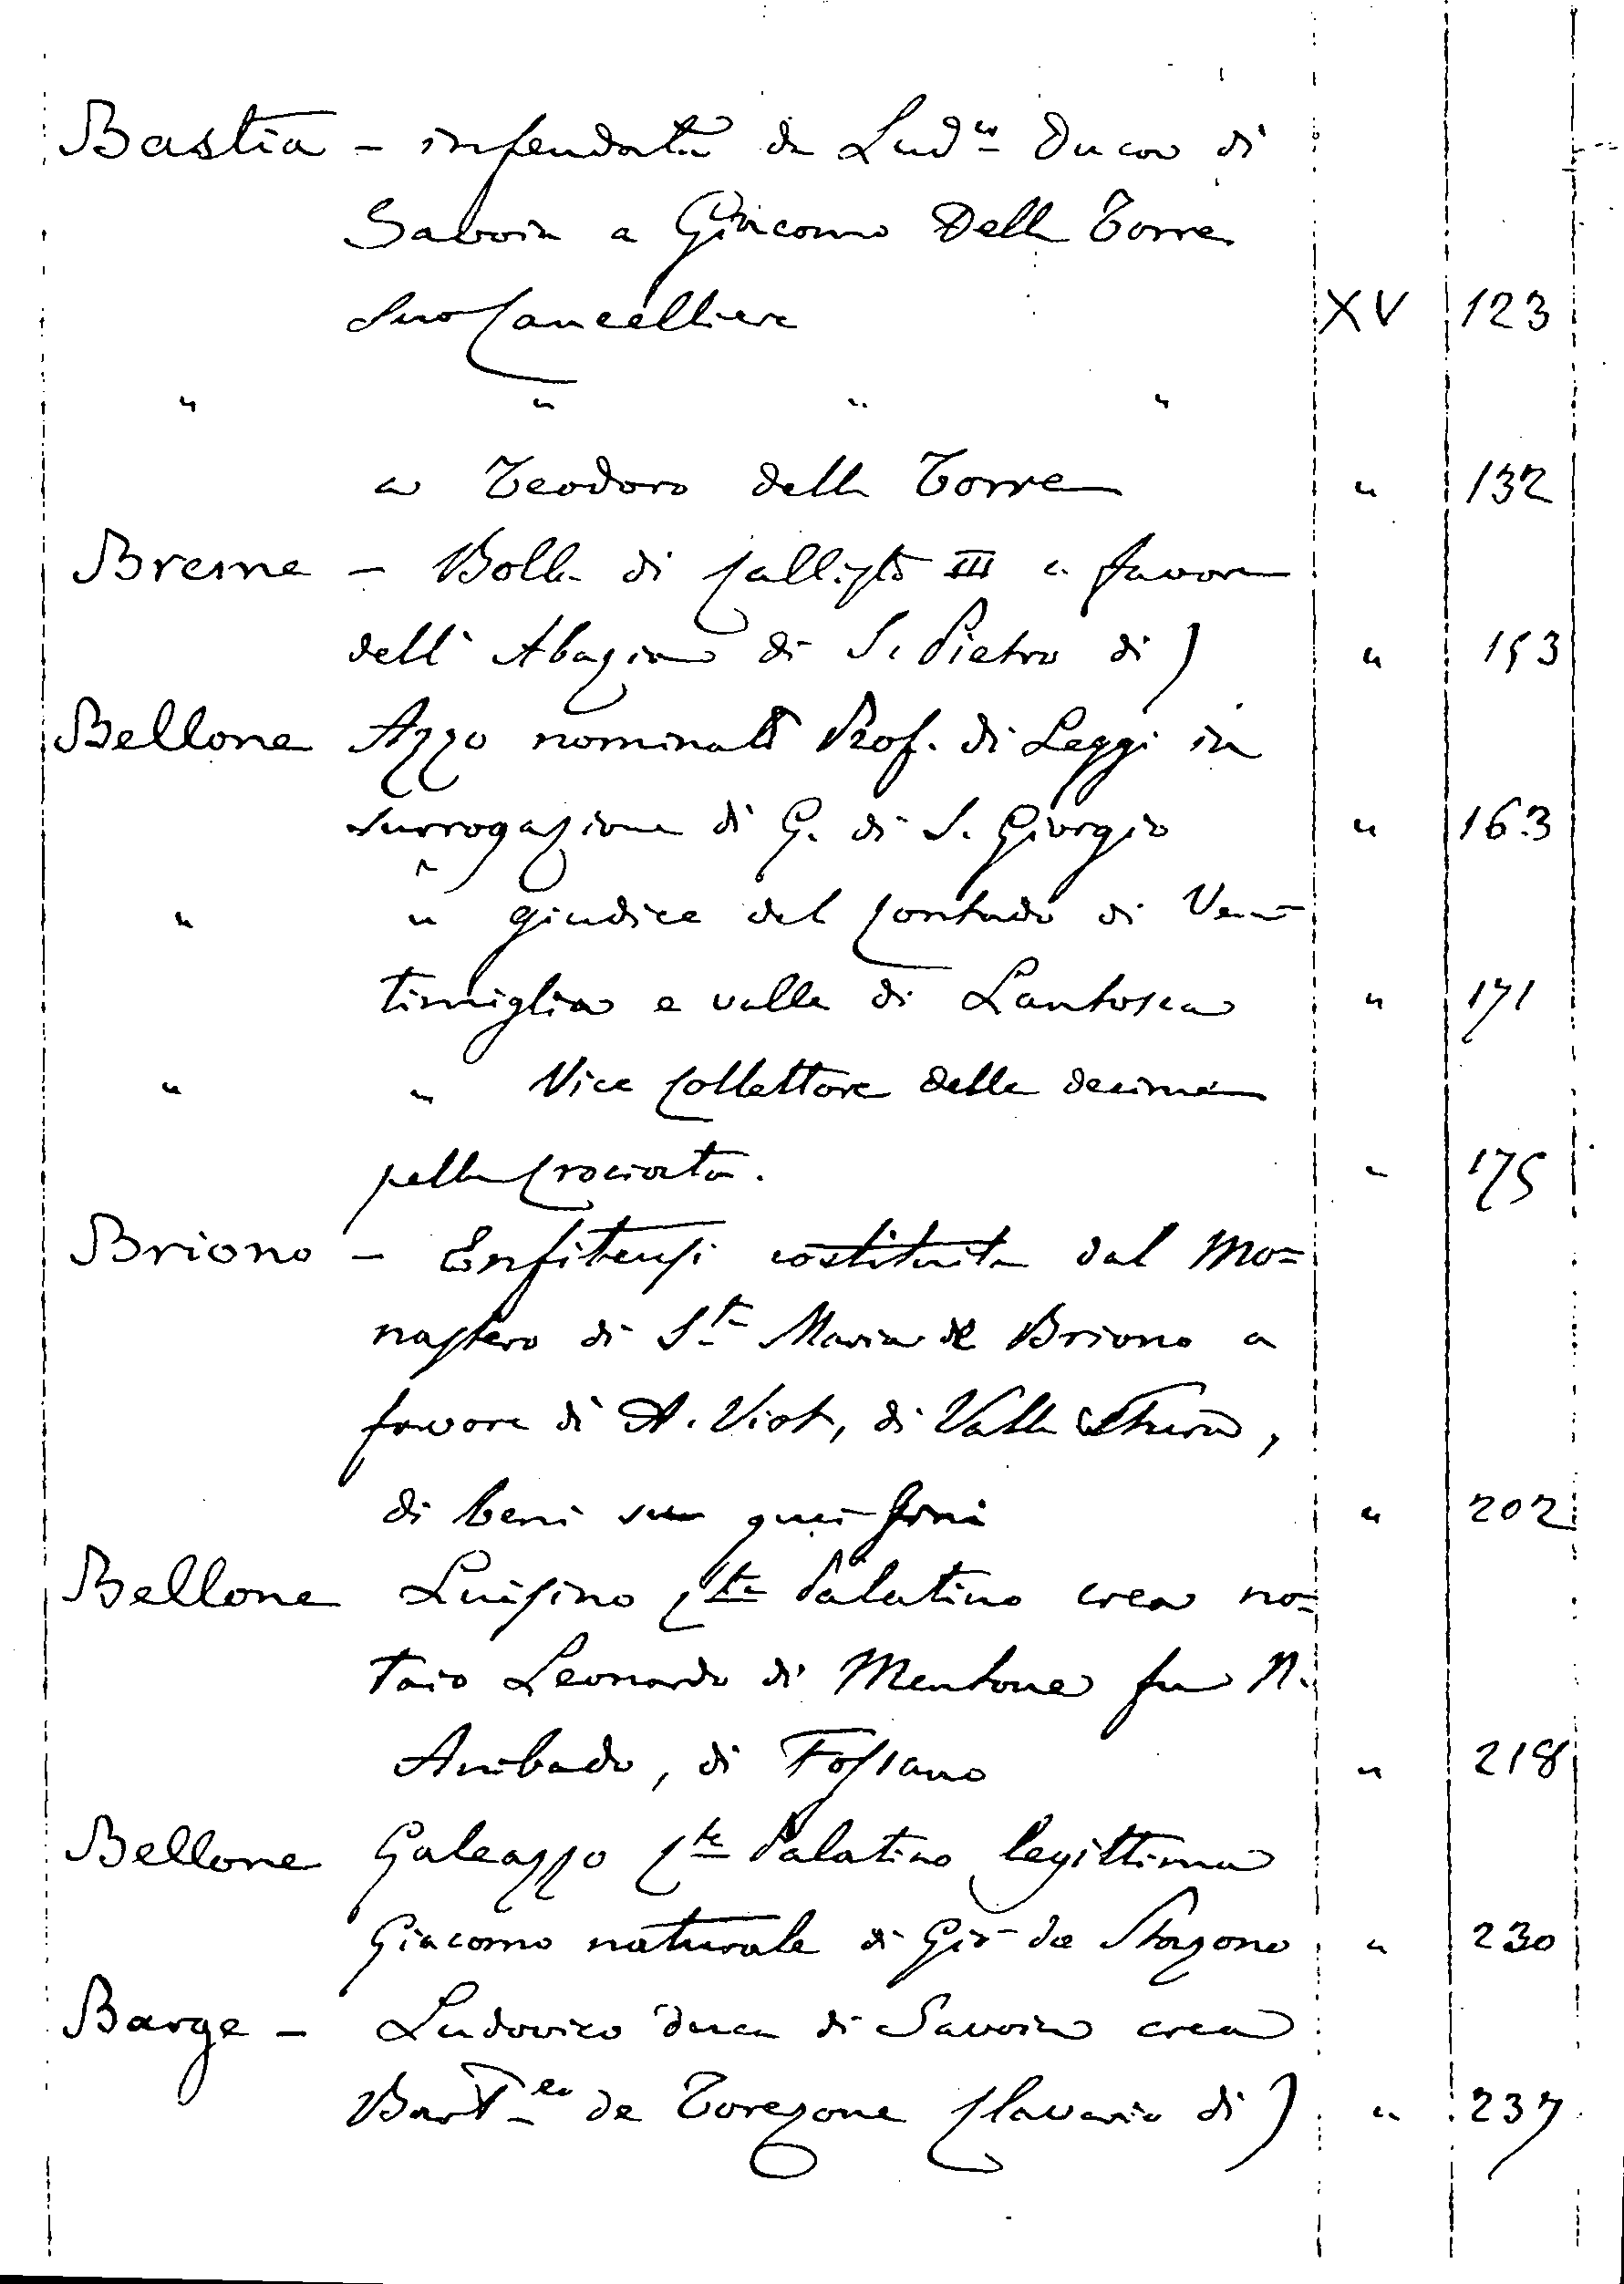 Bastia - infeudata da Lud.co Duca di
Savoia a Giacomo Della Torre
suo Cancelliere XV 123
" " " "
a Teodoro della Torre " 132
Breme - Bolla di Callisto III a favore
dell'Abazia di S. Pietro di) " 153
Bellone Azzo nominato Prof. di Leggi in
surrogazione di G. di S. Giorgio " 163
" " giudice del Contado di Ven-
timiglia e valle di Lantosca " 171
" " Vice Collettore delle decime
pella Crociata. " 175
Briono - Enfiteusi costituita dal Mo=
nastero di S.ta Maria de Briono a
favore di A. Viot, di Valle Stura,
di beni quei fini " 202
Bellone Luisino C.te Palatino crea no=
taio Leonardo di Mentone fu N.
Anibado, di Fossano " 218
Bellone Galeazzo C.te Palatino legittima
Giacomo naturale di Gio de Stozono " 230
Barge - Ludovico duca di Savoia crea
Bart.eo de Torezone Clavario di) " 237